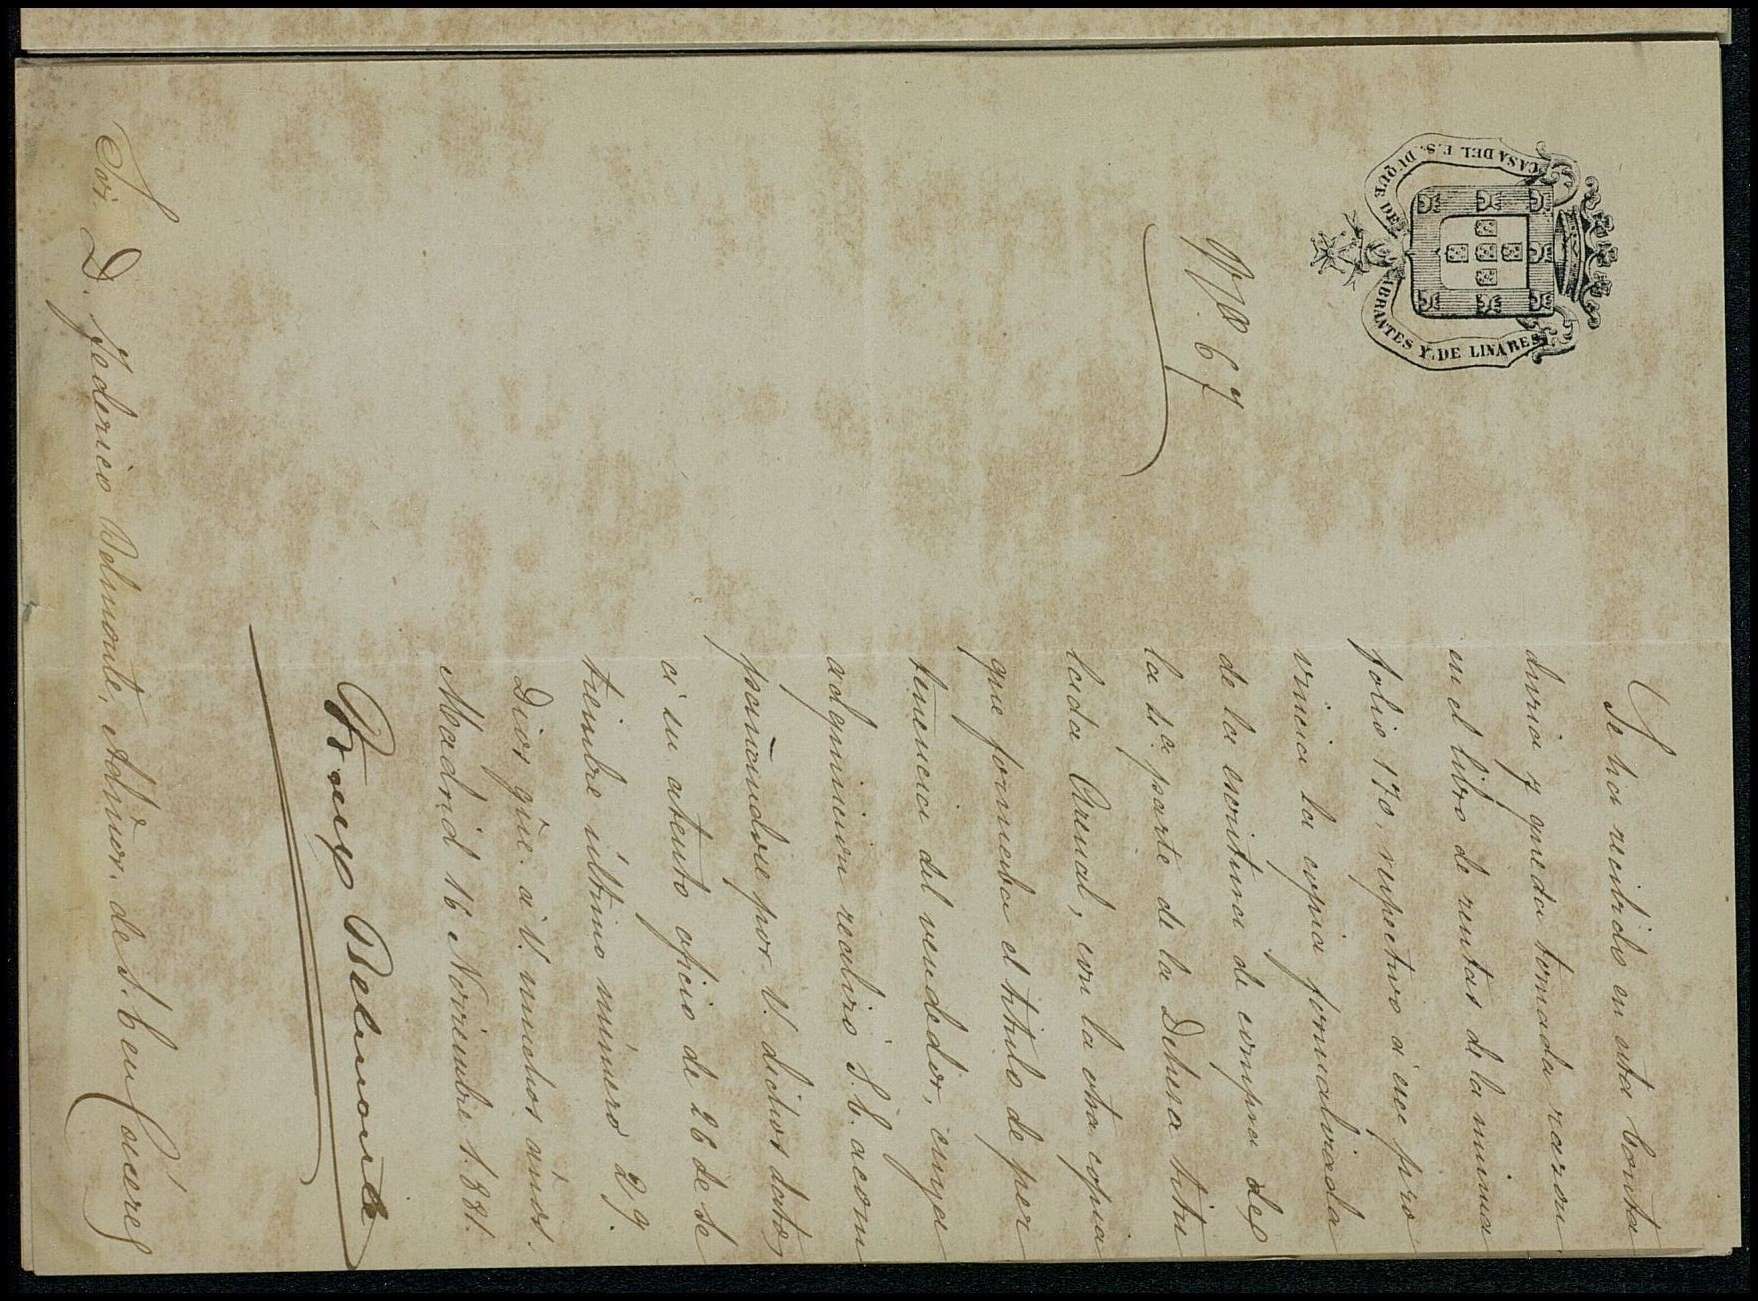 CASA DEL E.S. DUQUE DE ABRANTES Y DE LINARES
Nº 67
Se ha recibido en esta Conta
duria y queda tomada razon
en el libro de rentas de la misma
folio 170, respectivo á esa pro
vincia la copia formalizada
de la escritura de compra de
la 4ª parte de la Dehesa titu
lada Arenal, con la otra copia
que formaba el titulo de per
tenencia del vendedor, cuya
adquisicion realizó S.E. acom
pañandose por V. dichos datos
á su atento oficio de 26 de Se
tiembre último número 29.
Dios gũe. á V. muchos años.
Madrid 16 Noviembre 1.881.
Belmonte
Sor. D. Federico Belmonte, Admor. de S.E. en Cáceres